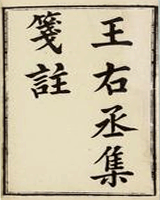 王右丞集
箋註